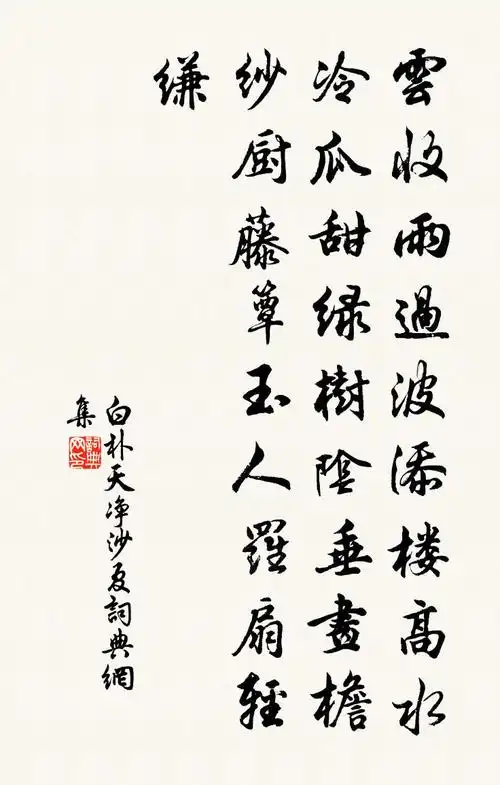 雲收雨過波添楼高水
冷瓜甜緑樹陰垂畫檐
紗厨藤簟玉人羅扇輕
縑
白朴天净沙夏詞典網
集
詞典网印